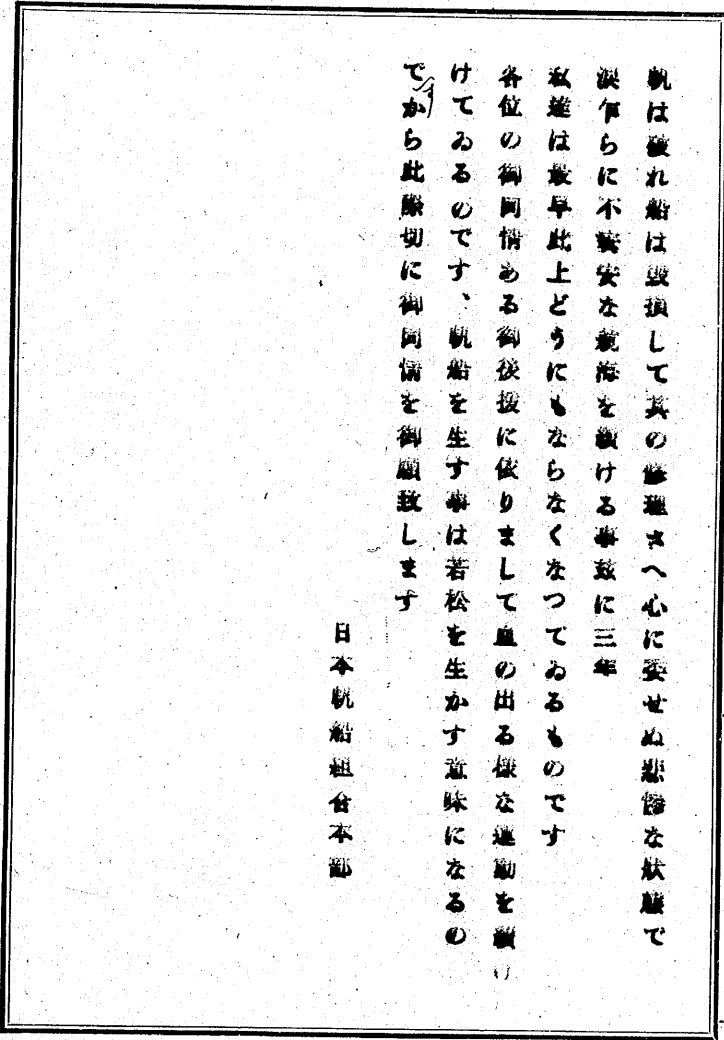 帆は破れ船は毀損して其の修理さへ心に委せぬ悲惨な狀態で
涙乍らに不安な航海を續ける事玆に三年
私達は最早此上どうにもならなくなつてゐるものです
各位の御同情ある御後援に依りまして血の出る樣な運動を續け
けてゐるのです、帆船を生す事は若松を生かす意味になるの
ですから此際切に御同情を御願致します
日本帆船組合本部